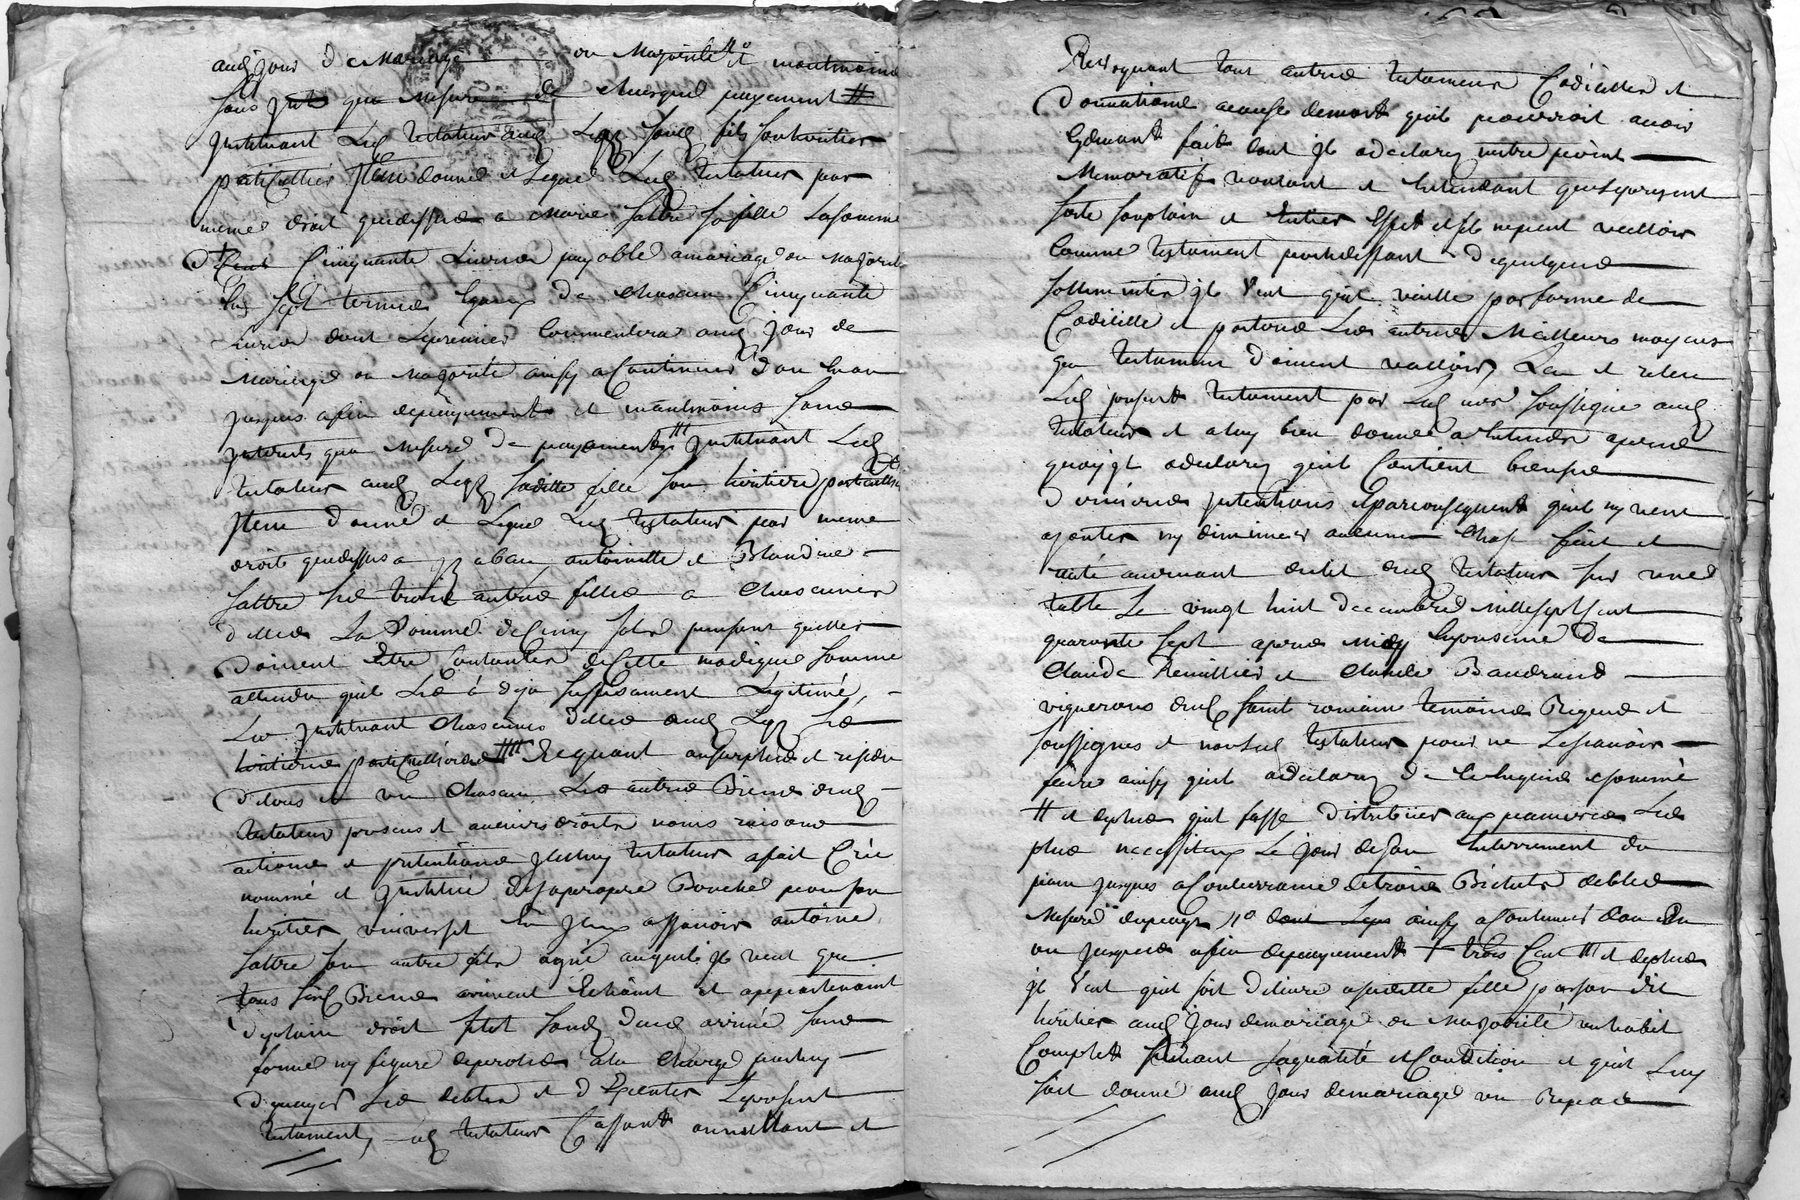 audjour de mariage ou majorité et mantmoins
sans que mesure de chasque payement
justituant Led testateur aud Legs sond fils son heritier
particullier Jtem donne et Legue Led testateur par
meme droit que dessus a marie fattre sa fille La somme
Cinquante Livres payable a mariage ou majorité
En sept termes Egaux de chascun Cinquante
Livres dont Le premier Commencera aud jour de
mariage ou majorité ainsy a Continuer d'an En an
jusques a fin de payement et mantmoins sans
jnterets qua mesure de payements justituant Led
testateur aud Legs saditte fille son heritiere particulliere
Jtem donne et Legue Led testateur par meme
droit que dessus a antoinette et Blandine
fattre ses trois autres filles a chascunes
d'elles La somme de Cinq sols pensant quelles
doivent Etre Contantes de Cette modique somme
attendu quil Les a deja suffisament Legitimé
Les justituant chascunes d'elles aud Legs ses
heritieres particullieres Et quant au surplus et residu
de tous et un chascun Les autres Biens dud
testateur presens et avenirs droits noms raisons
actions et pretentions jceluy testateur a fait Crée
nommé et justitué de sa propre Bouche pour son
heritier universel En jceux assavoir antoine
fattre son autre fils ayné auquel jl veut que
tous sesd Biens arrivent Echoint et appartenaint
de plain droit sitot sond deces arrivé sans
forme ny figure de proces a la charge par luy
de payer Les debtes et d'Executer Le present
testament, Led testateur Cassant annullant et
Revoquant tous autres testamens Codicilles et
donnations a cause de mort quil pourroit avoir
Cydevant fait dont jl a declaré netre point
memoratif voulant et Entendant que le present
sorte son plain et Entier Effet et sil ne peut valloir
Comme testament par deffaut de quelque
sollemnités jl veut quil vaille par forme de
Codicille et par tous Les autres meilleurs moyens
que testament doivent valloir, Leu et releu
Led present testament par Led nore soussigné aud
testateur et a luy bien donné a Entendre apres
quoy jl a declaré quil Contient bien ses
dernieres jntentions Et par consequent quil ny veut
ajouter ny diminuer aucune Chose fait et
dud testateur sur une
table Le vingt huit decembre mille sept cent
quarante sept apres midy En presence de
Claude Remillier et Claude Baudrand
vignerons dud saint romain temoins Requis et
soussignes et non Led testateur pour ne Le scavoir
faire ainsy quil a declaré de ce Enquis et sommé
# et de plus quil fasse distribuer aux pauvres Les
plus necessiteux Le jour de son Enterrement du
pain jusques a Concurrance de trois Bichets de bled
mesure ainsy a Continuer d'an En
an jusques a fin de payement + trois Cent et de plus
jl veut quil soit delivré a sadette fille par son dit
heritier aud jour de mariage ou majorité un habit
Complet suivant sa qualité et Condition et quil Luy
soit donné aud jour de mariage un Repas